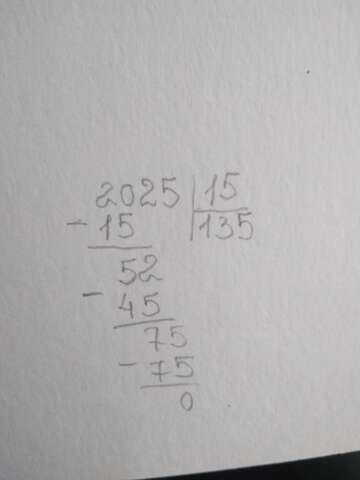 2025 15
- 15 135
52
- 45
75
- 75
0